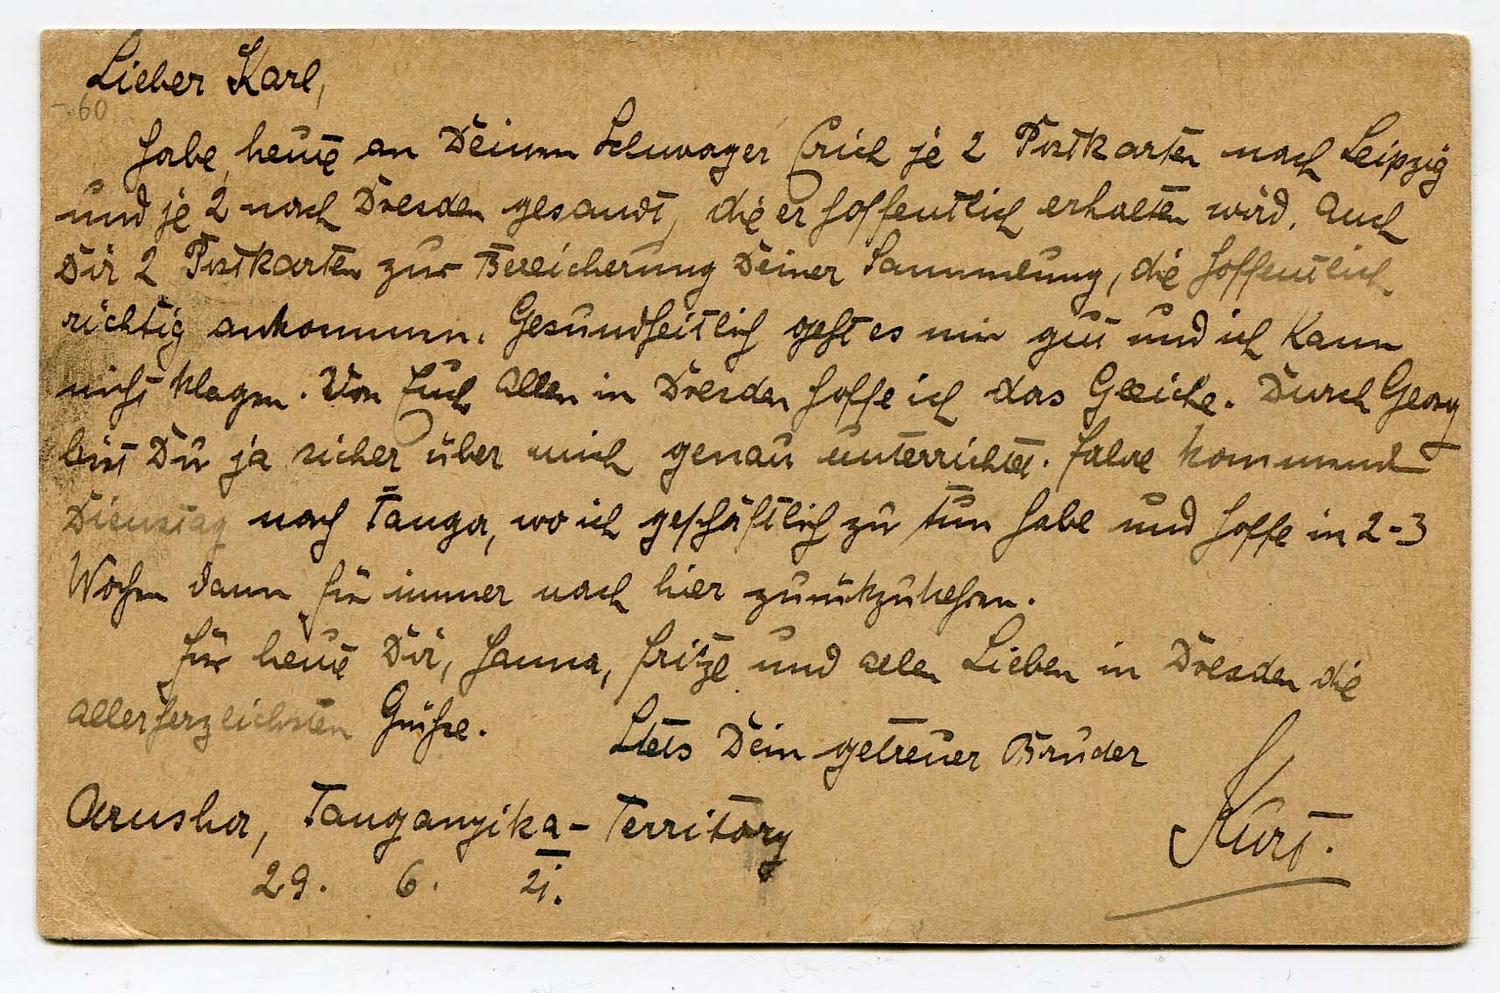 Lieber Karl,
-.60
habe heute an Deinen Schwager Erich je 2 Postkarten nach Leipzig
und je 2 nach Dresden gesandt, die er hoffentlich erhalten wird. Auch
Dir 2 Postkarten zur Bereicherung Deiner Sammlung, die hoffentlich
richtig ankommen. Gesundheitlich geht es mir gut und ich kann
nicht klagen. Von Euch allen in Dresden hoffe ich das Gleiche. Durch Georg
bist Du ja sicher über mich genau unterrichtet. Fahre kommend
Dienstag nach Tanga, wo ich geschäftlich zu tun habe und hoffe in 2-3
Wochen dann für immer nach hier zurückzukehren.
Für heute Dir, Hanna, Fritze und allen Lieben in Dresden die
allerherzlichsten Grüße.
Stets Dein getreuer Bruder
Kurt.
Arusha, Tanganyika-Territory
29. 6.